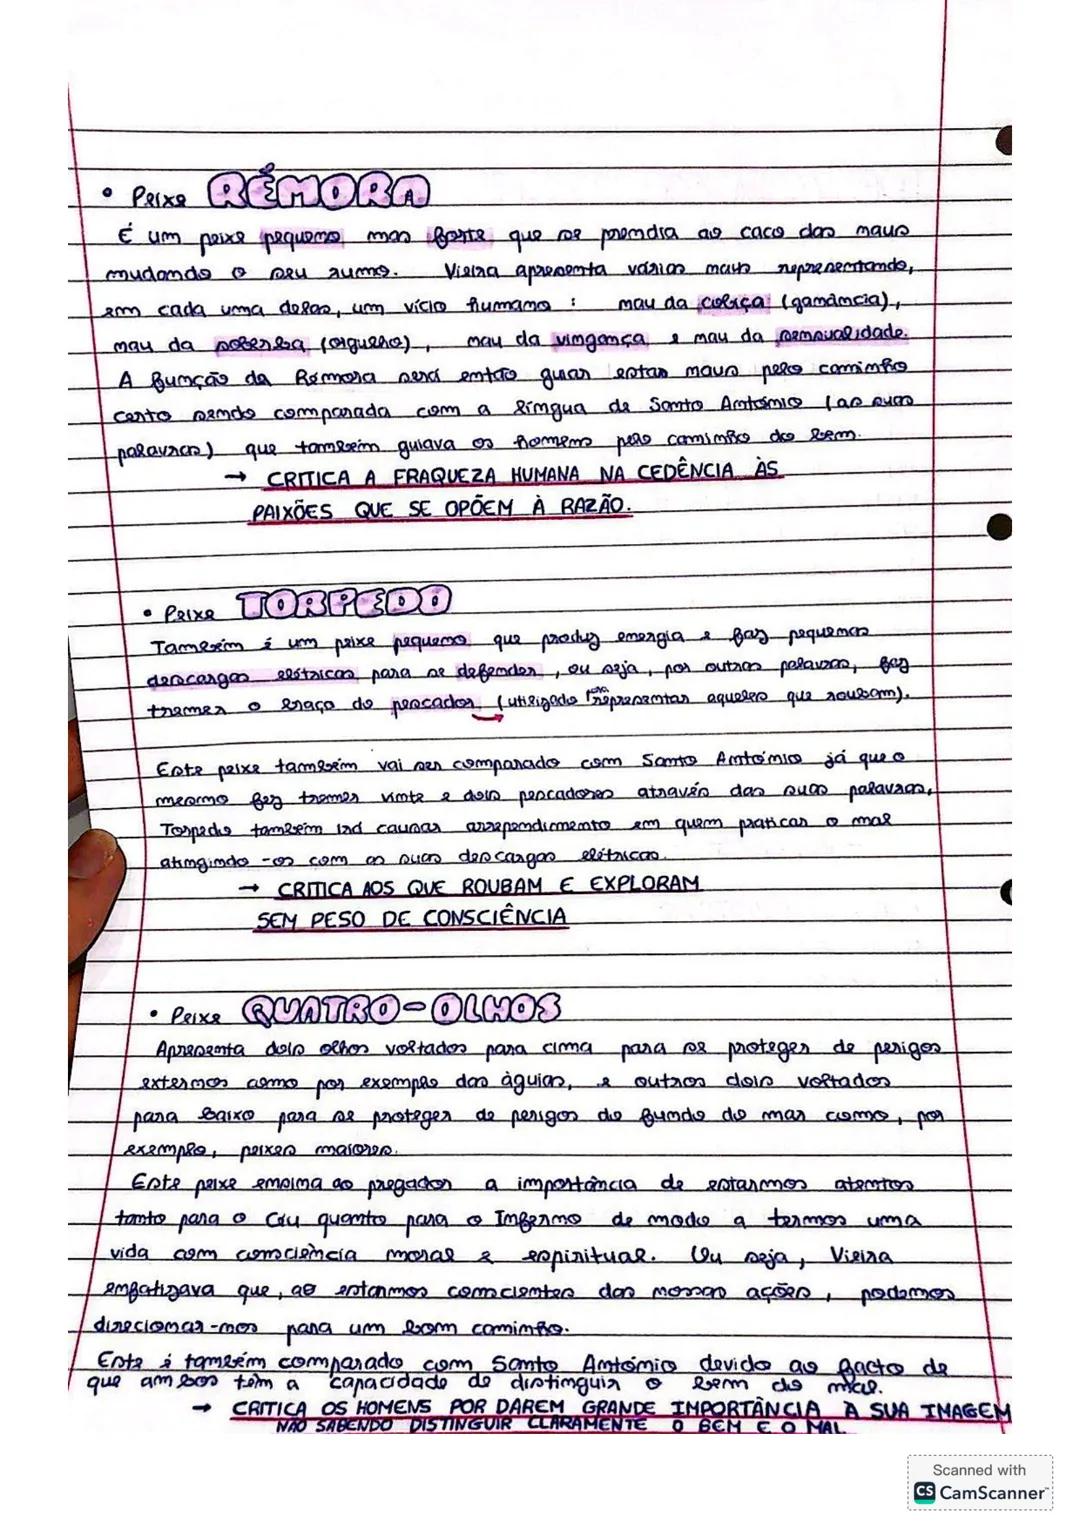 • Peixe RÉMORA
É um peixe pequeno mas forte que se prendia ao caco das naus
mudando o seu rumo. Vieira apresenta várias naus representando,
em cada uma delas, um vício humano : nau da cobiça (ganância),
nau da soberba (orgulho), nau da vingança e nau da sensualidade.
A função da Rémora será então guiar estas naus pelo caminho
certo sendo comparada com a língua de Santo António (as suas
palavras) que também guiava os homens pelo caminho do bem.
→ CRITICA A FRAQUEZA HUMANA NA CEDÊNCIA ÀS
PAIXÕES QUE SE OPÕEM À RAZÃO.
• Peixe TORPEDO
Também é um peixe pequeno que produz energia e faz pequenas
descargas elétricas para se defender, ou seja, por outras palavras, faz
tremer o braço do pescador (utilizado para representar aqueles que roubam).
Este peixe também vai ser comparado com Santo António já que o
mesmo fez tremer vinte e dois pescadores através das suas palavras,
Torpedo também irá causar arrependimento em quem praticar o mal
atingindo-os com as suas descargas elétricas.
→ CRITICA AOS QUE ROUBAM E EXPLORAM
SEM PESO DE CONSCIÊNCIA
• Peixe QUATRO-OLHOS
Apresenta dois olhos voltados para cima para se proteger de perigos
externos como por exemplo das àguias, e outros dois voltados
para baixo para se proteger de perigos do fundo do mar como, por
exemplo, peixes maiores.
Este peixe ensina ao pregador a importância de estarmos atentos
tanto para o Céu quanto para o Inferno de modo a termos uma
vida com consciência moral e espiritual. Ou seja, Vieira
enfatizava que, ao estarmos conscientes das nossas ações, podemos
direcionar-nos para um bom caminho.
Este é também comparado com Santo António devido ao facto de
que ambos têm a capacidade de distinguir o bem do mal.
→ CRITICA OS HOMENS POR DAREM GRANDE IMPORTÂNCIA A SUA IMAGEM
NÃO SABENDO DISTINGUIR CLARAMENTE O BEM E O MAL
Scanned with
CS CamScanner